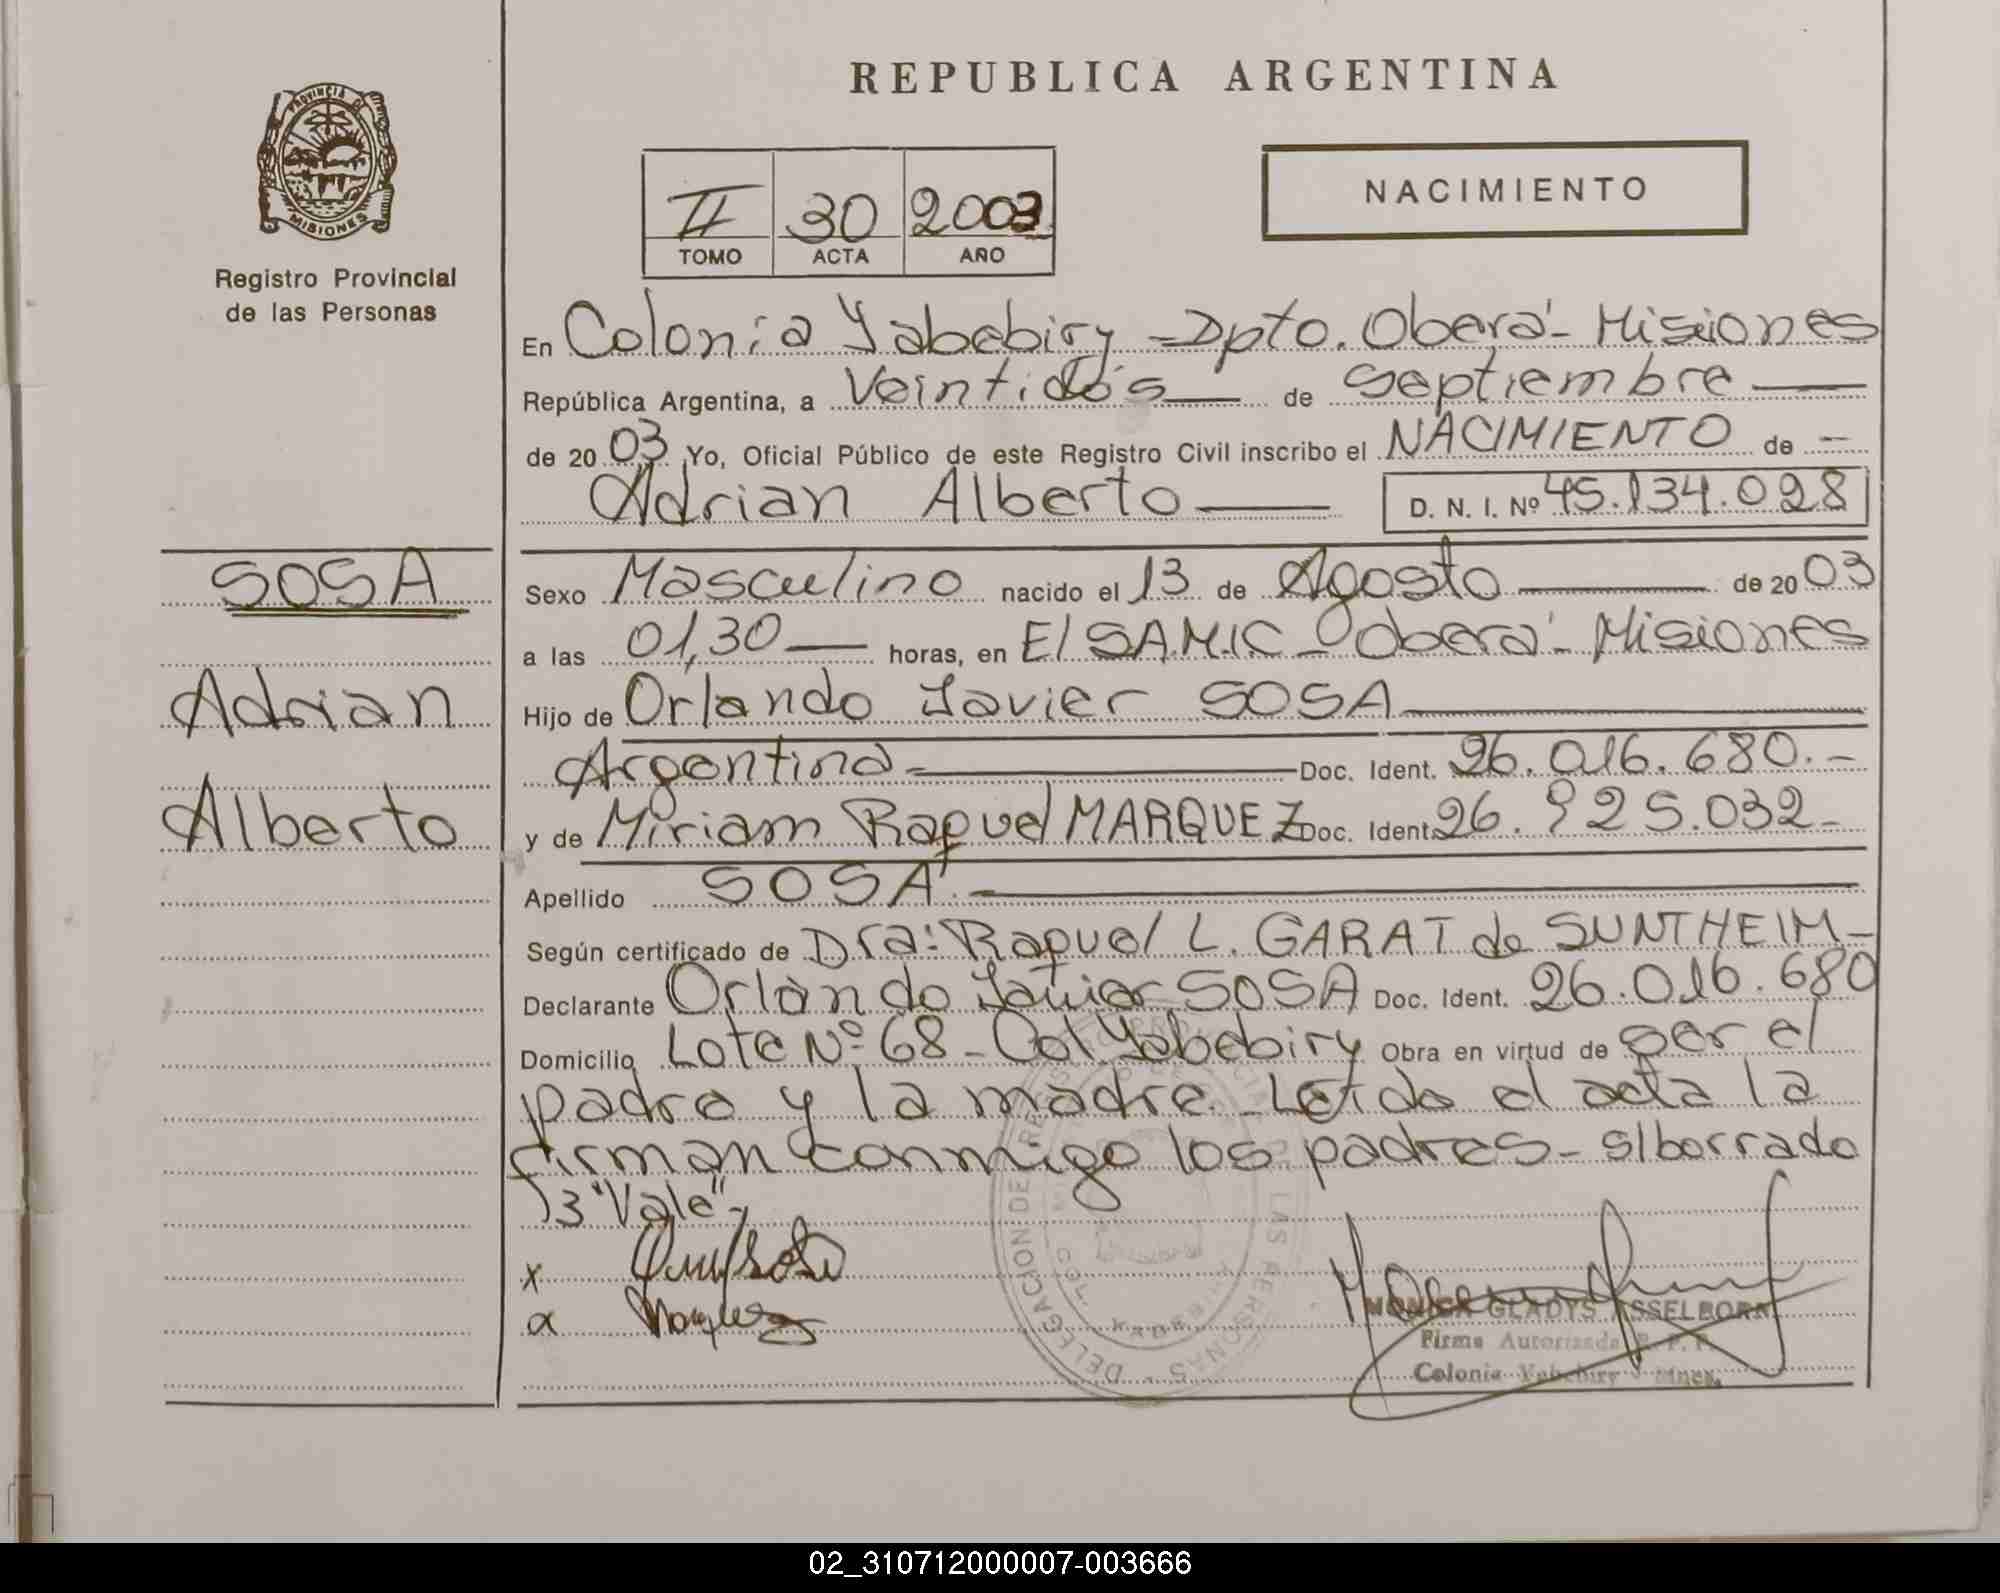 REPUBLICA ARGENTINA
PROVINCIA DE
MISIONES
Registro Provincial
de las Personas
II 30 2003
TOMO ACTA AÑO
NACIMIENTO
En Colonia Yabebiry - Dpto. Oberá - Misiones
República Argentina, a Veintidós de Septiembre
de 2003 Yo, Oficial Público de este Registro Civil inscribo el NACIMIENTO de
Adrian Alberto D. N. I. Nº 45.134.028
SOSA
Adrian
Alberto
Sexo Masculino nacido el 13 de Agosto de 2003
a las 01,30 horas, en El S.A.M.I.C - Oberá - Misiones
Hijo de Orlando Javier SOSA
Argentina Doc. Ident. 26.016.680.-
y de Miriam Raquel MARQUEZ Doc. Ident. 26.925.032-
Apellido SOSA.
Según certificado de Dra: Raquel L. GARAT de SUNTHEIM-
Declarante Orlando Javier SOSA Doc. Ident. 26.016.680
Domicilio Lote Nº 68 - Col Yabebiry Obra en virtud de ser el
padre y la madre - Leído el acta la
firman conmigo los padres - s/borrado
3 "Vale"-
x
x Marquez
DELEGACION DE LAS PERSONAS
MONICA GLADYS ASSELBORN
Firma Autorizada R. P. P.
Colonia Yabebiry - Mnes.
02_310712000007-003666